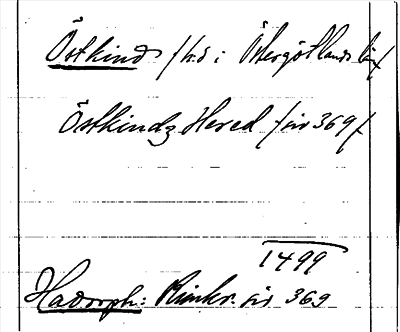 Östkind /hd i Östergötlands län/
Östkindz Hered /av 369/
1499
Hadorph: Rimkr. av 369